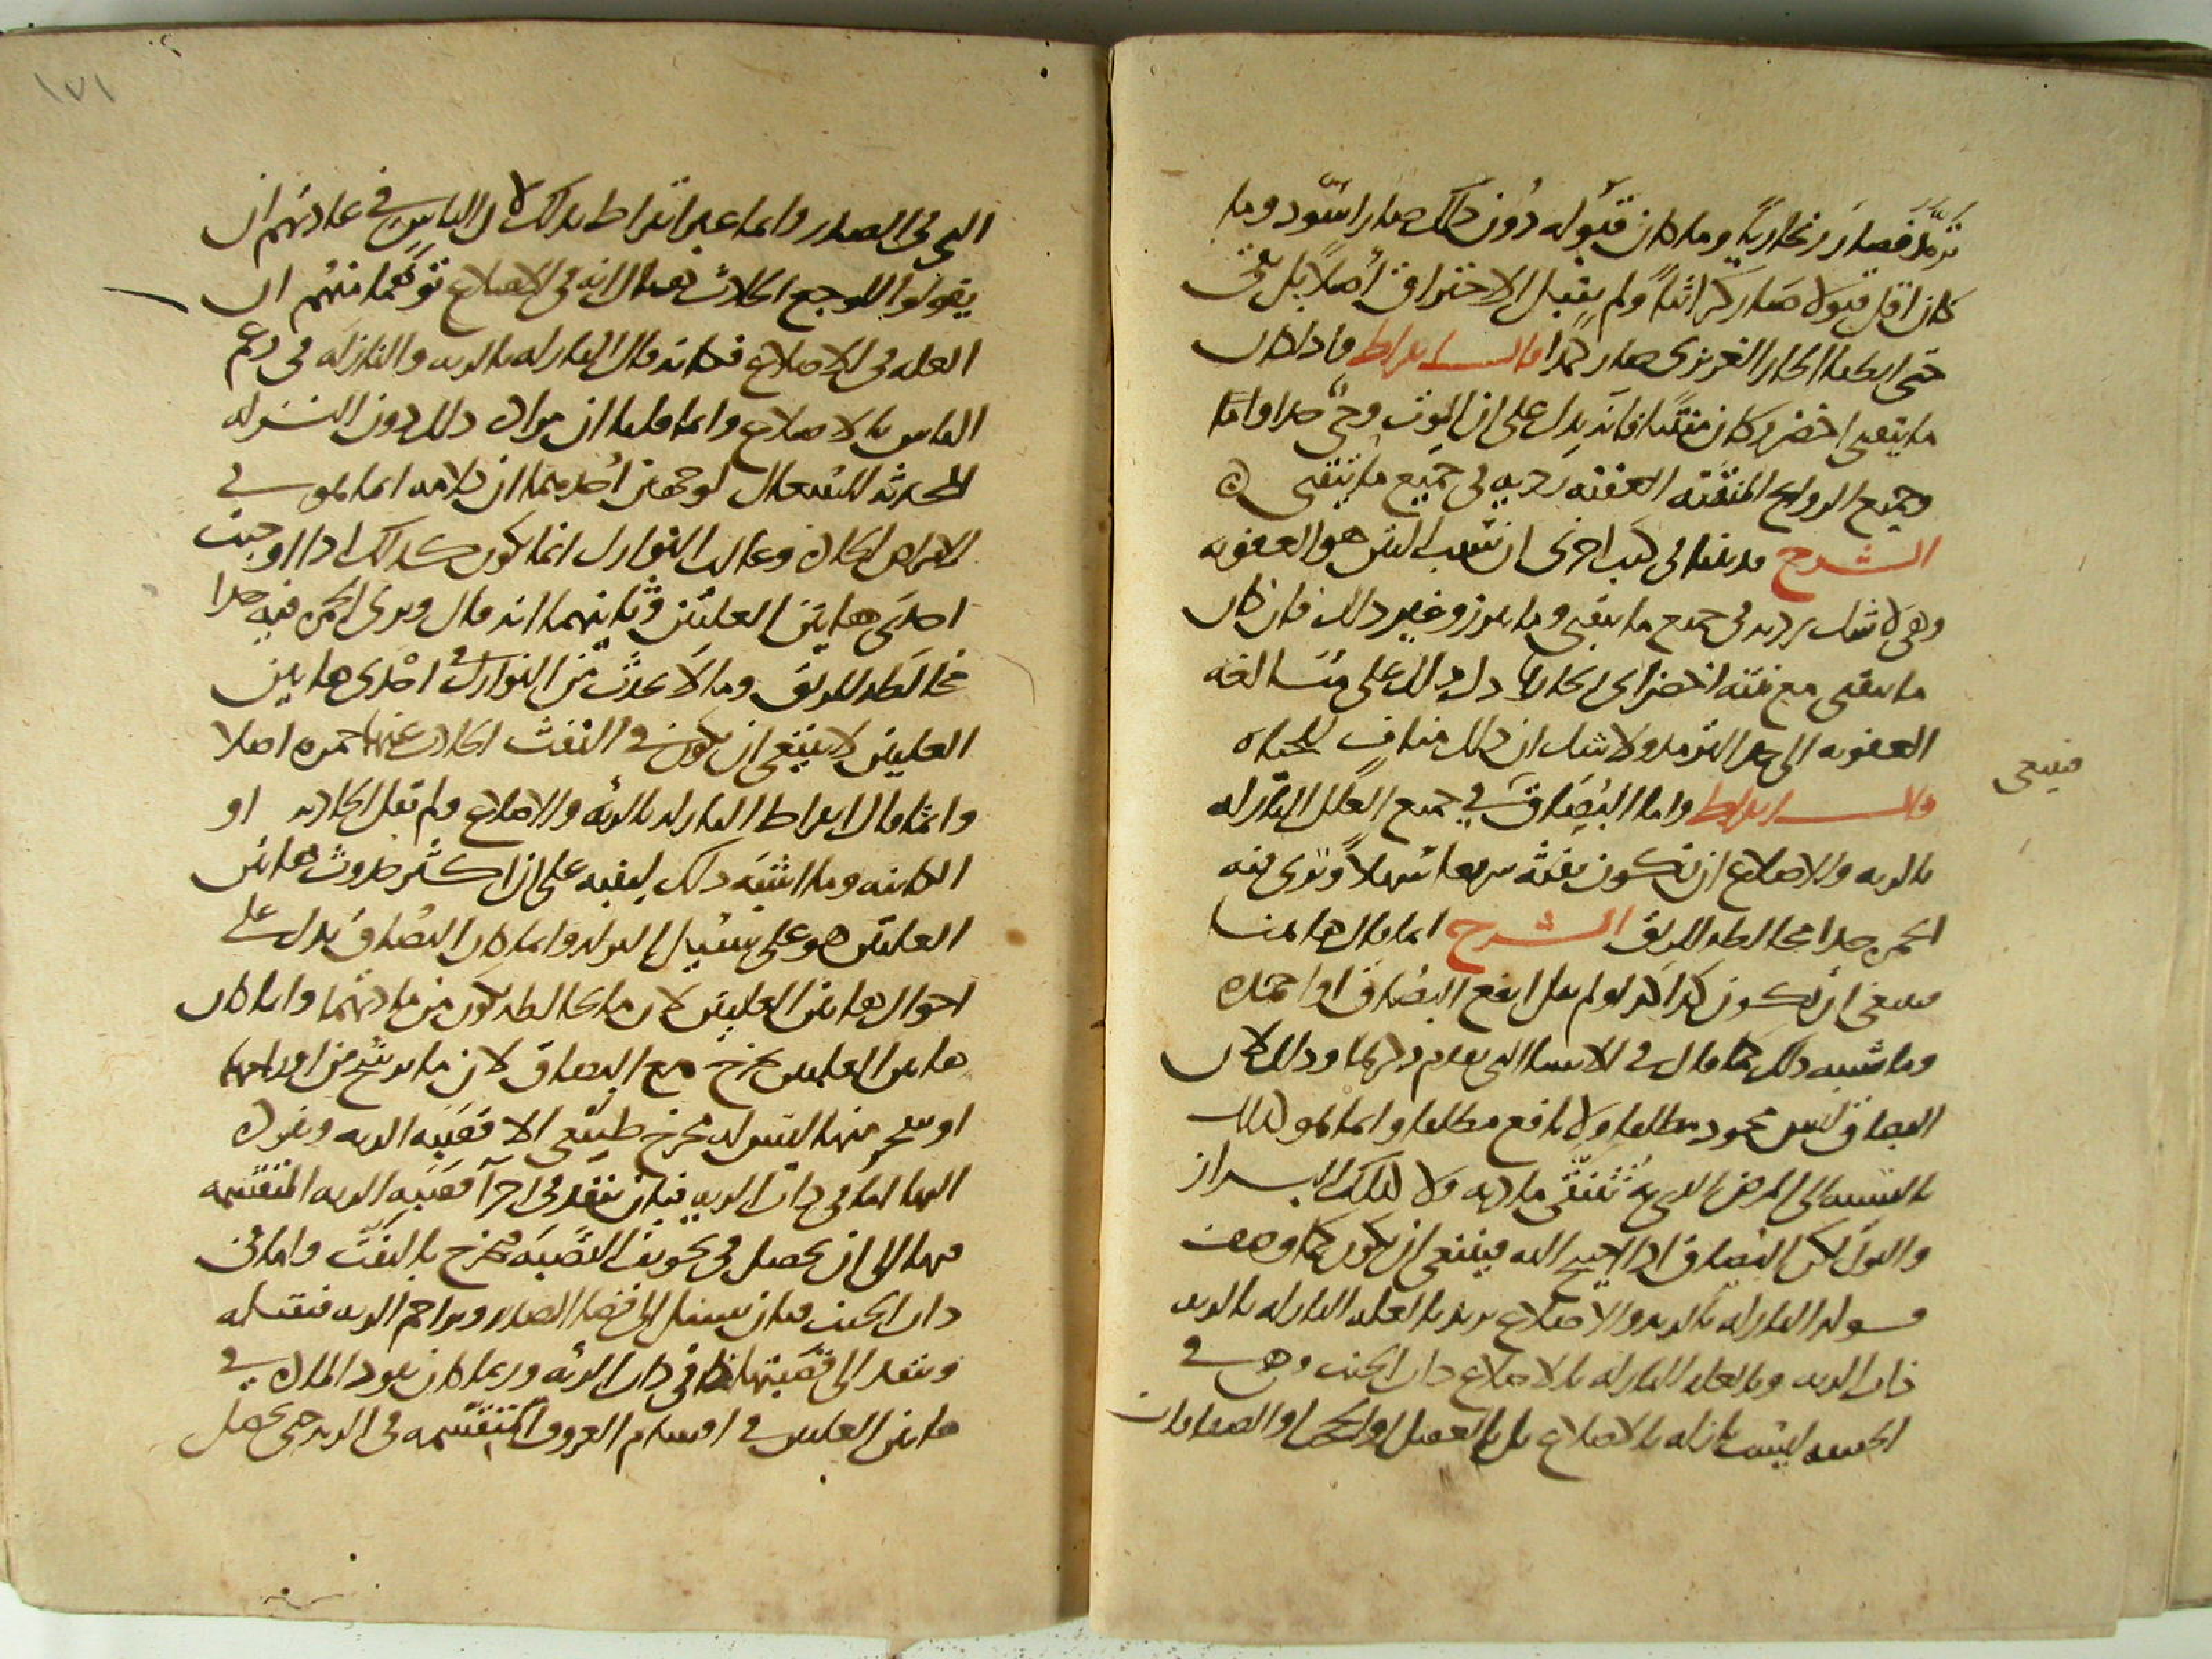 ترمّد فصار زنجاريا وما كان قبوله دون ذلك صار اسود وما
كان اقل قبولا صار كراثيا ولم يقبل الاحتراق اصلا بل بقى
حتى الحار الغريزى صار كمدا قال ابقراط فاذا كان
ما يتقيى اخضر وكان منتنا فانه يدل على ان الموت وحىّ جدا واما
وجميع الروايح المنتنة العفنة رديه فى جميع ما يتقيى
الشرح قد بينا فى كتب اخرى ان سبب النتن هو العفونه
وهى لا شك رديه فى جميع ما يتقيى وما يبرز وغير ذلك فان كان
ما يتقيى مع نتنه اخضر اى زنجاريا دل ذلك على مبالغه
العفونه الى حد الترمد ولا شك ان ذلك مناف للحياه
قال ابقراط واما البصاق فى جميع العلل النازله
بالريه والاضلاع ان يكون نفثه سريعا سهلا وترى فيه
الحمره جدا مخالطه للريق الشرح انما قال هاهنا
فينبغى ان يكون كذا كذا ولم يقل انفع البصاق او احمده
وما شبه ذلك كما قال فى الاشيا التى تقدم ذكرها وذلك لان
البصاق ليس بمحمود مطلقا ولا نافع مطلقا وانما هو كذلك
بالنسبه الى المرض الذى به تنتقى مادته ولا كذلك البراز
والبول لكن البصاق اذا احتيج اليه فينبغى ان يكون كما وصف
قوله النازله بالريه والاضلاع يريد بالعله النازله بالريه
ذات الريه وبالعله النازله بالاضلاع ذات الجنب وهى فى
الحقيقه ليست نازله بالاضلاع بل بالعضل او الحجاب او الصفاقات
فينبغى
١٧١
التى فى الصدر وانما عبر ابقراط بذلك لان الناس فى عادتهم ان
يقولوا للوجع الحادث هناك انه فى الاضلاع توهما منهم ان
العله فى الاضلاع فكانه قال النازله بالريه والنازله فى زعم
الناس بالاضلاع وانما قلنا ان مراده ذلك دون النزله
المحدثه للسعال لوجهين احدهما ان كلامه انما هو فى
الامراض الحاده وغالب النوازل انما يكون كذلك اذا اوجبت
احدى هاتين العلتين وثانيهما انه قال وترى الحمره فيه جدا
مخالطه للريق وما لا يحدث من النوازل احدى هاتين
العلتين لا ينبغى ان يكون فى النفث الحادث عنها حمره اصلا
وانما قال ابقراط النازله بالريه والاضلاع ولم يقل الحادثه او
الكاينه وما اشبه ذلك لينبه على ان اكثر حدوث هاتين
العلتين هو على سبيل النزله وانما كان البصاق يدل على
احوال هاتين العلتين لان ما يخالطه يكون من مادتهما وانما كان
هاتين العلتين يخرج مع البصاق لان ما يرشح من اورامها
او ينفجر منها ليس له مخرج طبيعى الا قصبه الريه ونفوذه
اليها اما فى ذات الريه فبان ينفذ فى اجزآ قصبه الريه المنقسمه
فيها الى ان يحصل فى تجويف القصبه فيخرج بالنفث واما فى
ذات الجنب فبان يسيل الى فضا الصدر ويزاحم الريه فتقبله
وينفذ الى قصبتها كما فى ذات الريه وربما كان نفوذ الماده فى
هاتين العلتين فى اقسام العروق المنقسمه فى الريه حتى يحصل